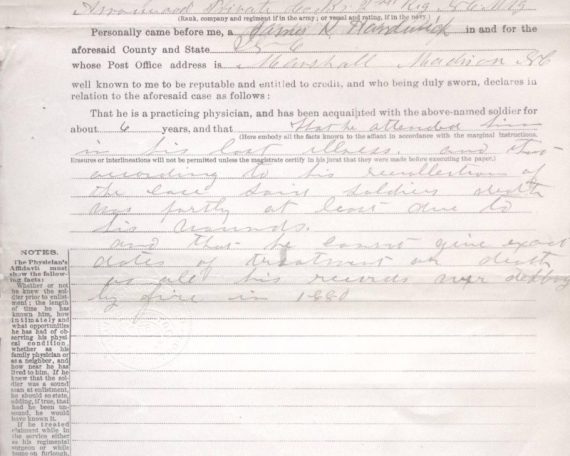 Private Co
(Rank, company and regiment if in the army; or vessel and rating, if in the navy.)
Personally came before me, a James R. Hardwick in and for the
aforesaid County and State
whose Post Office address is Marshall Madison NC
well known to me to be reputable and entitled to credit, and who being duly sworn, declares in
relation to the aforesaid case as follows:
That he is a practicing physician, and has been acquainted with the above-named soldier for
about 6 years, and that that he attended him
(Here embody all the facts known to the affiant in accordance with the marginal instructions.
in his last illness. and that
Erasures or interlineations will not be permitted unless the magistrate certify in his jurat that they were made before executing the paper.)
according to his recollection of
the case said soldiers death
was partly at least due to
his wounds.
and that he cannot give exact
dates of treatment or death
for all his records were
by fire in 1880
NOTES.
The Physician's
Affidavit must
show the follow-
ing facts:
Whether or not
he knew the sol-
dier prior to enlist-
ment; the length
of time he has
known him, how
intimately and
what opportunities
he has had of ob-
serving his physi-
cal condition,
whether as his
family physician or
as a neighbor, and
how near he has
lived to him. If he
knew that the sol-
dier was a sound
man at enlistment,
he should so state,
adding, if true, that
had he been un-
sound, he would
have known it.
If he treated
claimant while in
the service either
as his regimental
surgeon or while
home on furlough,